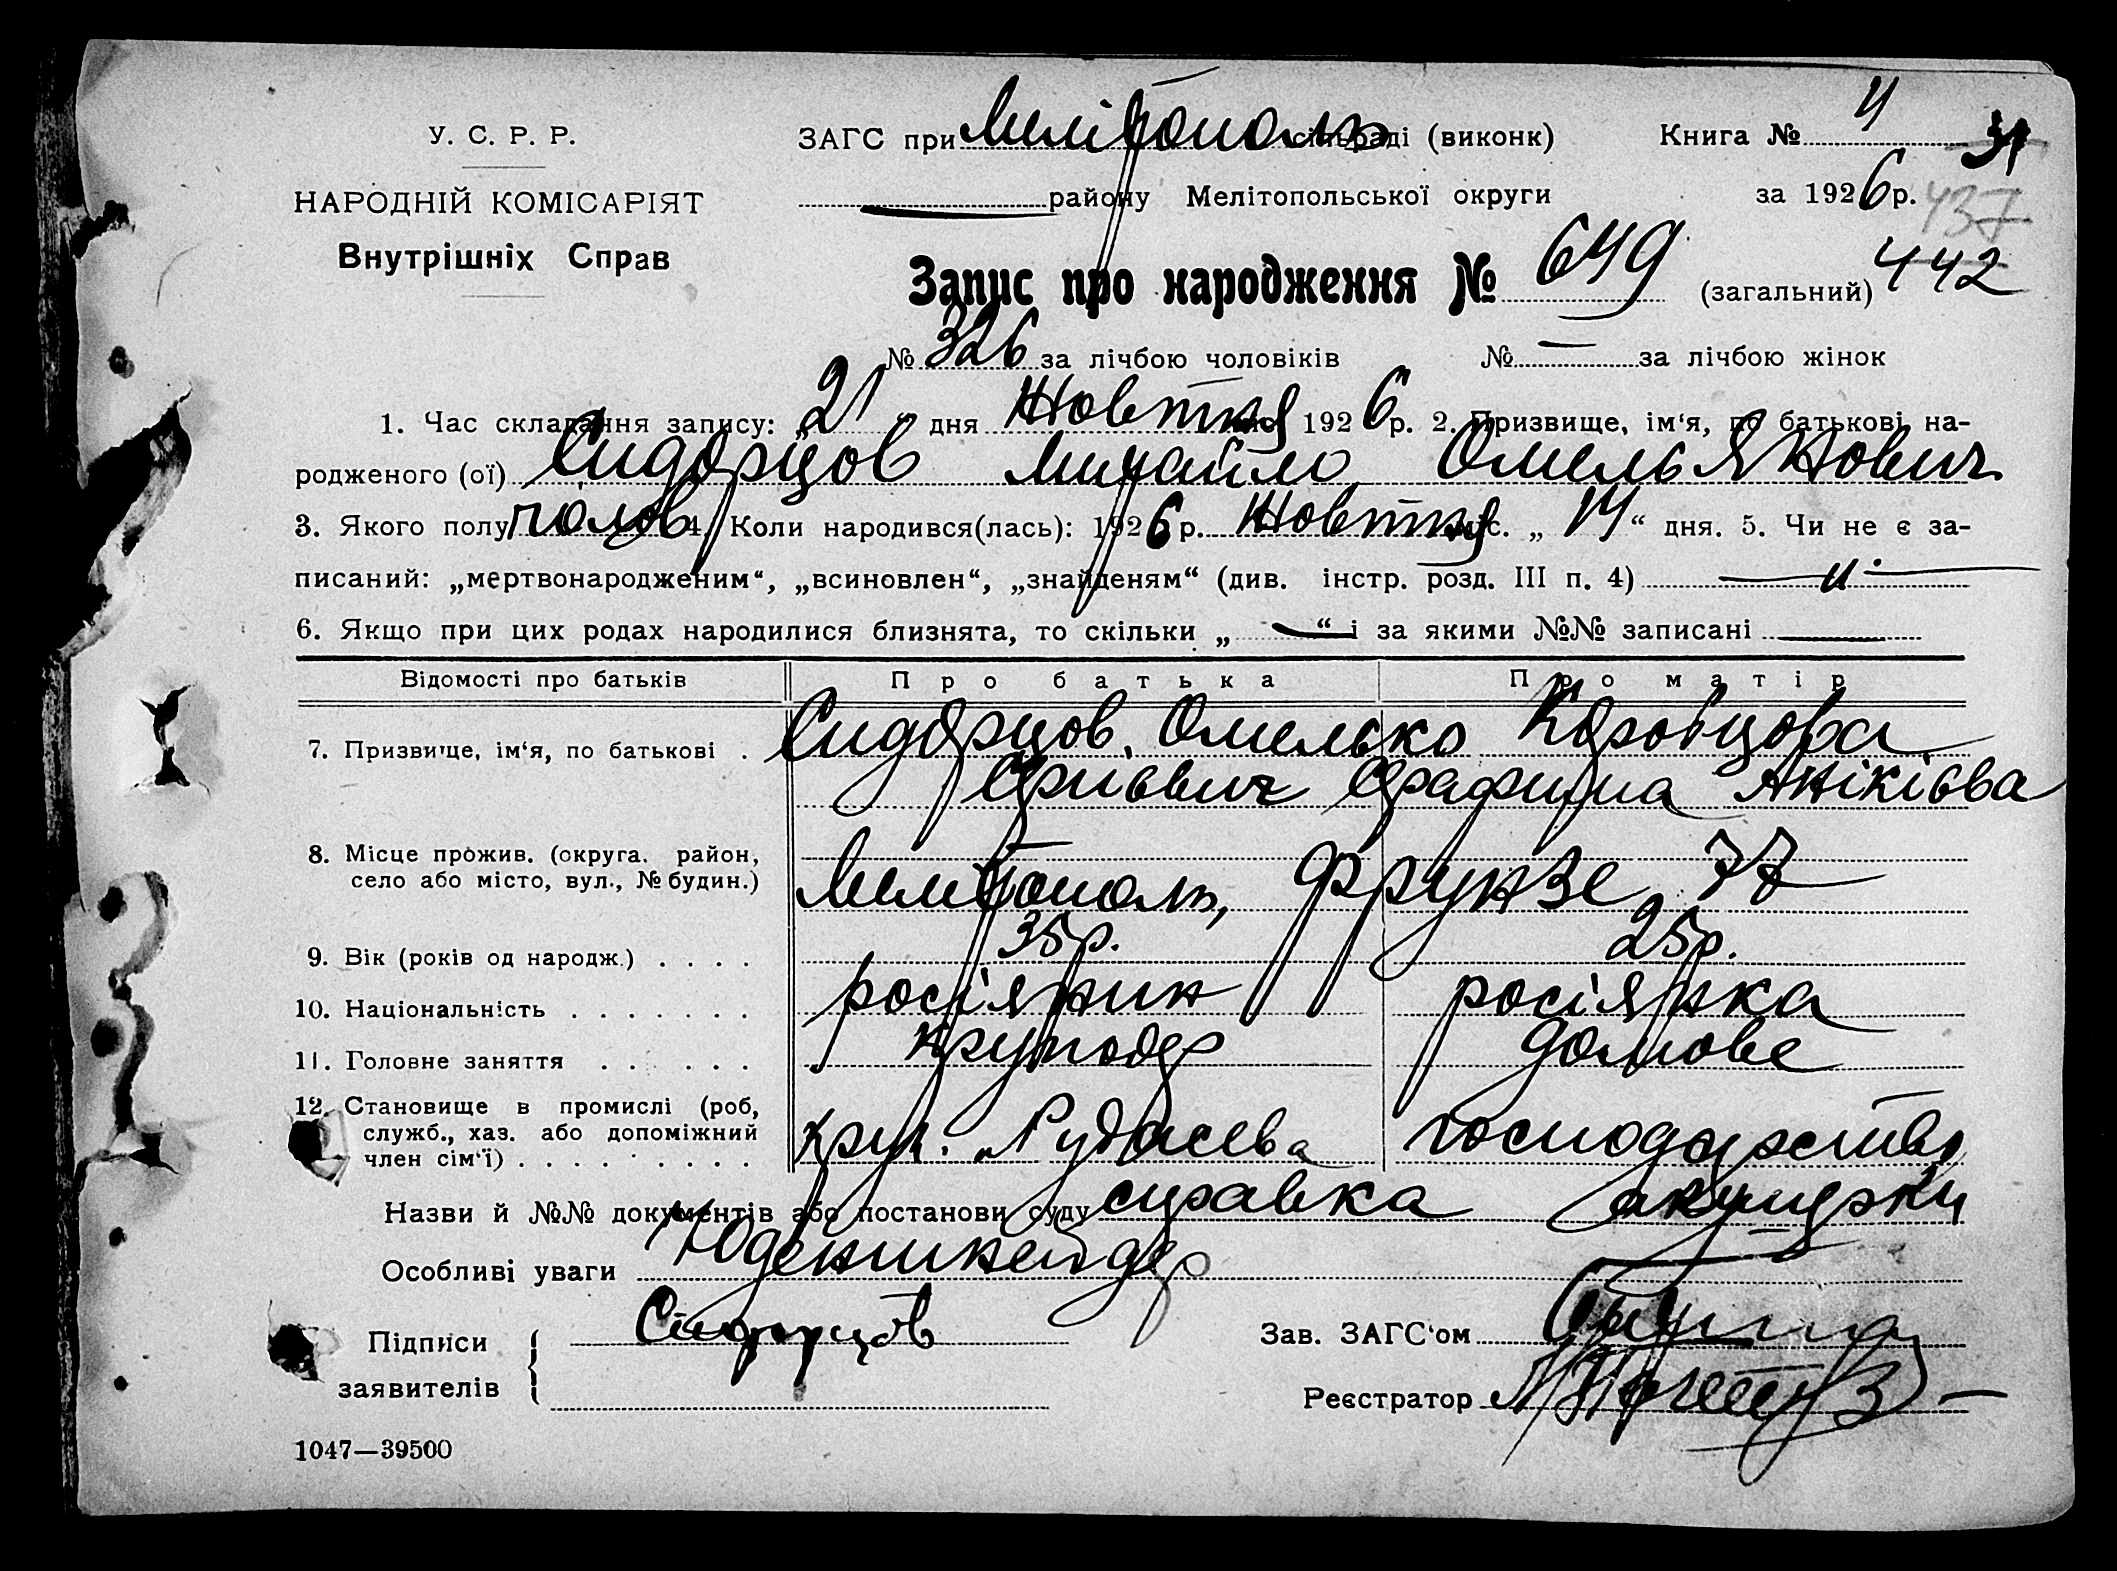 У. С. Р. Р.
НАРОДНІЙ КОМІСАРІЯТ
Внутрішніх Справ
ЗАГС при Мелітополь сільраді (виконк) Книга № 4 31
району Мелітопольської округи за 1926 р. 437
Запис про народження № 649 (загальний) 442
№ 326 за лічбою чоловіків № — за лічбою жінок
1. Час складання запису: „21“ дня Жовтня міс. 1926 р. 2. Призвище, ім‘я, по батькові на-
родженого (ої) Сидорцов Михайло Омельянович
3. Якого полу чолов 4. Коли народився(лась): 1926 р. Жовтня міс. „14“ дня. 5. Чи не є за-
писаний: „мертвонародженим“, „всиновлен“, „знайденям“ (див. інстр. розд. III п. 4)
6. Якщо при цих родах народилися близнята, то скільки „—“ і за якими №№ записані —
Відомості про батьків Про батька Про матір
7. Призвище, ім‘я, по батькові . Сидорцов Омелько Коровцова
Юрієвич Серафима Анікієва
8. Місце прожив. (округа, район,
село або місто, вул., № будин.) Мелітополь, Фрунзе 77
9. Вік (років од народж.) . . . . 35 р. 25 р.
10. Національність . . . . . . . росіянин росіянка
11. Головне заняття . . . . . . круподер домове
12. Становище в промислі (роб,
служб., хаз. або допоміжний
член сім‘ї) . . . . . . . . . круп. господарство
Назви й №№ документів або постанови суду справка акушерки
Особливі уваги
Підписи Сидорцов Зав. ЗАГС‘ом
заявителів Реєстратор
1047—39500